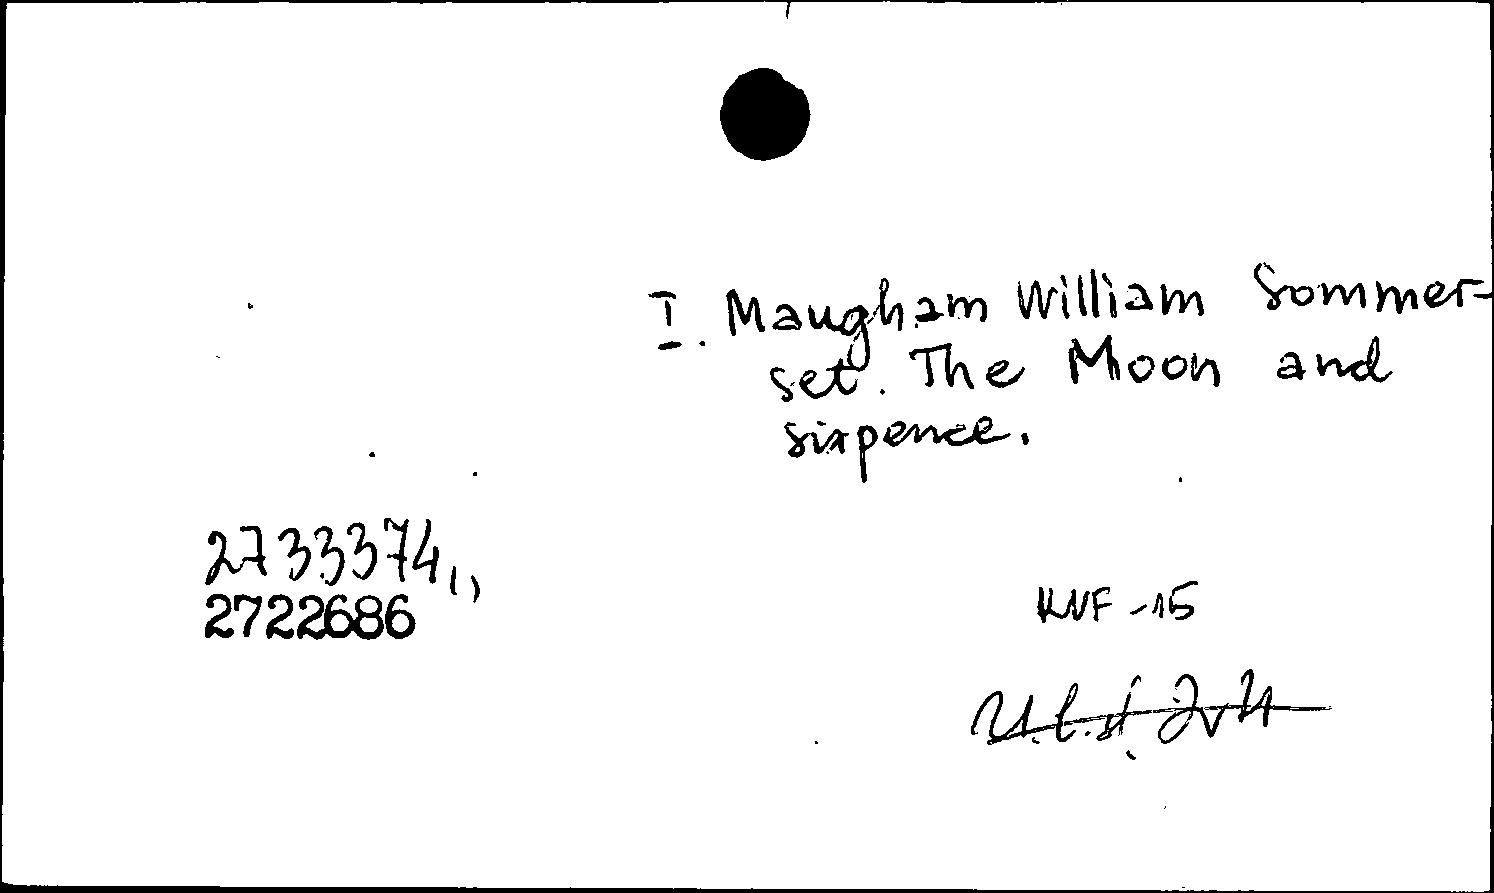 I. Maugham William Sommer-
set. The Moon and
sixpence.
2733374,,
2722686
KVF-15